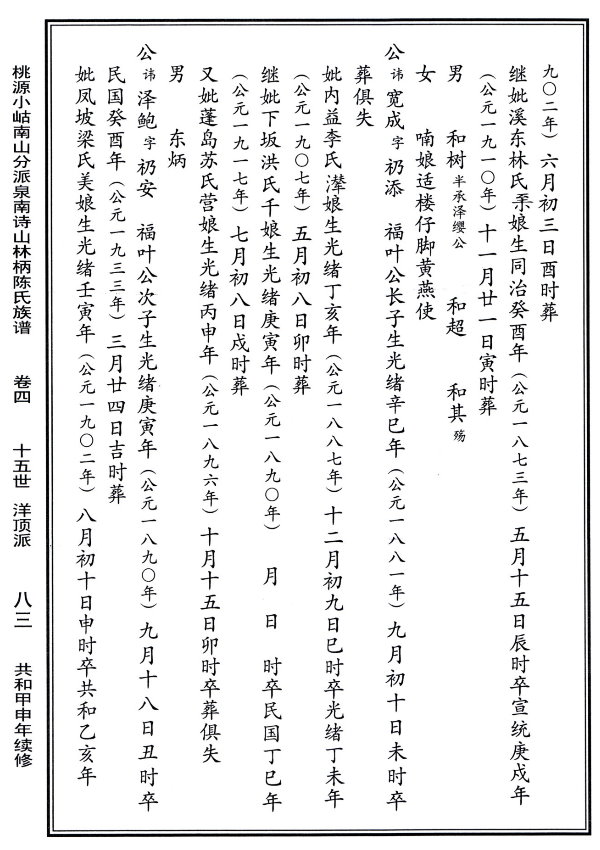 九〇二年）六月初三日酉时葬
继妣溪东林氏秉娘生同治癸酉年（公元一八七三年）五月十五日辰时卒宣统庚戌年
（公元一九一〇年）十一月廿一日寅时葬
男 和树半承泽缨公 和超 和其殇
女 喃娘适楼仔脚黄燕使
公讳宽成字礽添 福叶公长子生光绪辛巳年（公元一八八一年）九月初十日未时卒
葬俱失
妣内益李氏娘生光绪丁亥年（公元一八八七年）十二月初九日巳时卒光绪丁未年
（公元一九〇七年）五月初八日卯时葬
继妣下坂洪氏千娘生光绪庚寅年（公元一八九〇年） 月 日 时卒民国丁巳年
（公元一九一七年）七月初八日戌时葬
又妣蓬岛苏氏营娘生光绪丙申年（公元一八九六年）十月十五日卯时卒葬俱失
男 东炳
公讳泽鲍字礽安 福叶公次子生光绪庚寅年（公元一八九〇年）九月十八日丑时卒
民国癸酉年（公元一九三三年）三月廿四日吉时葬
妣凤坡梁氏美娘生光绪壬寅年（公元一九〇二年）八月初十日申时卒共和乙亥年
桃源小岵南山分派泉南诗山林柄陈氏族谱 卷四 十五世 洋顶派 八三 共和甲申年续修